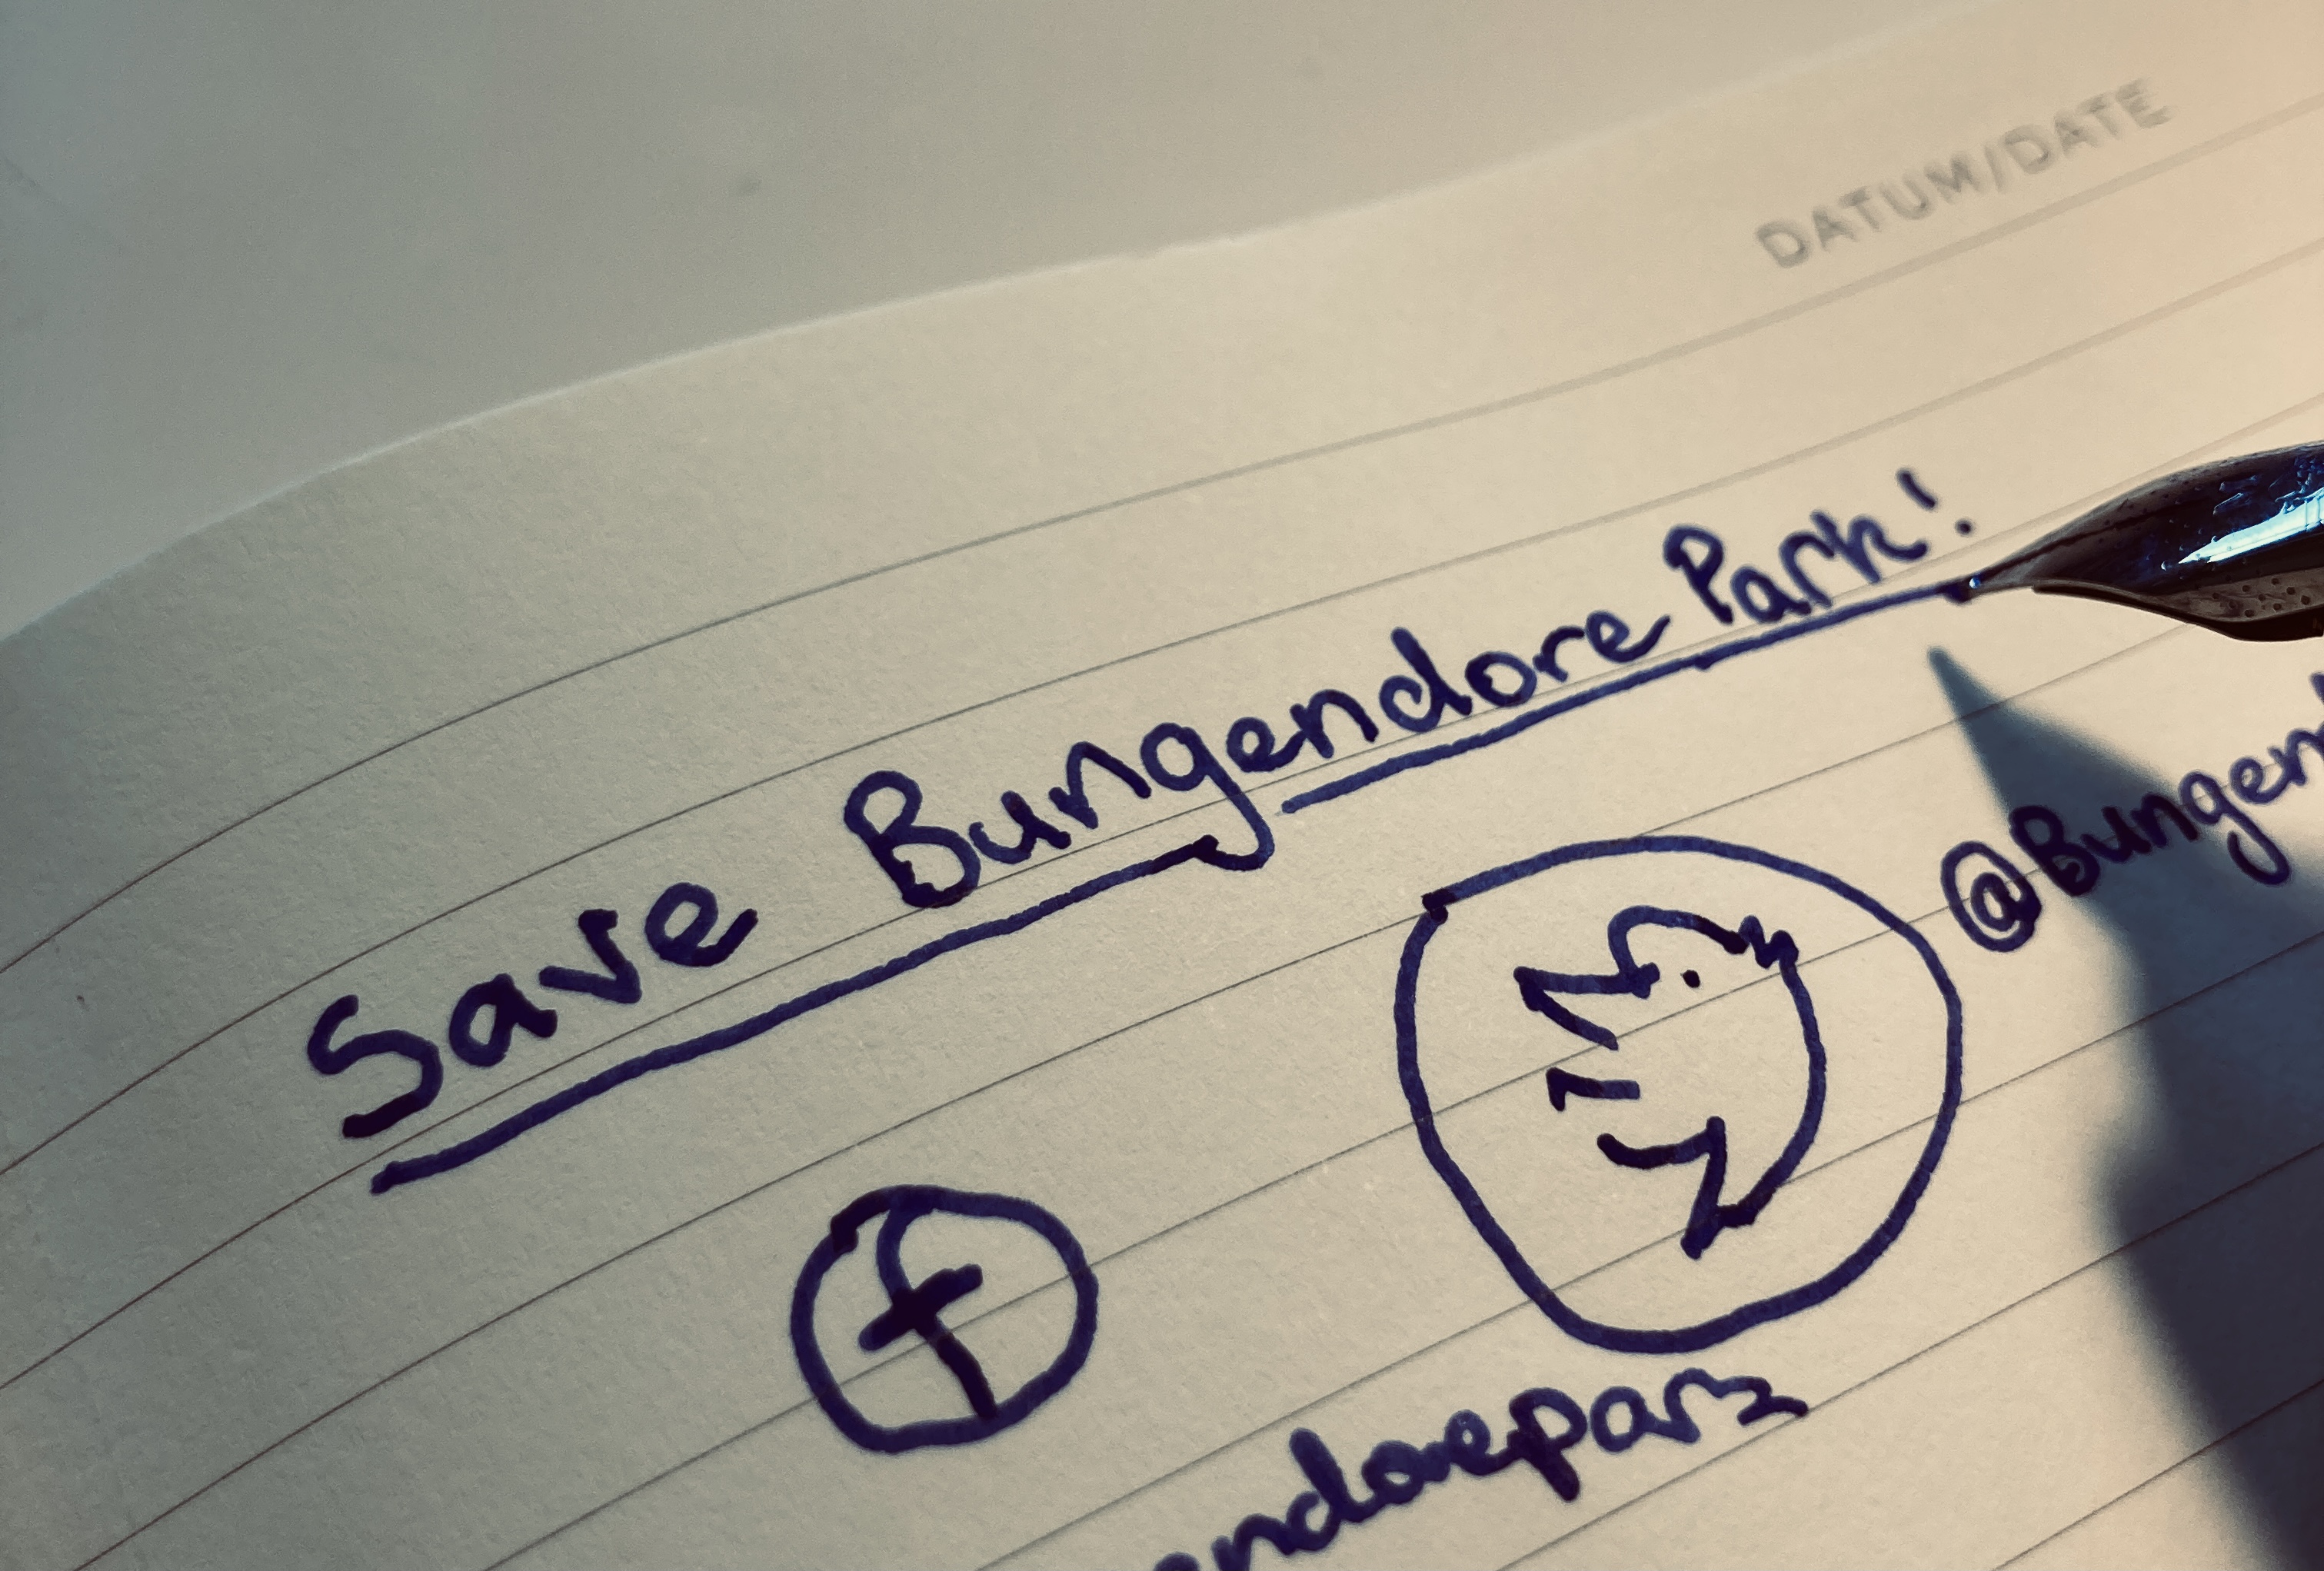 DATUM/DATE
Save Bungendore Park!
@Bungen
f
endorepark